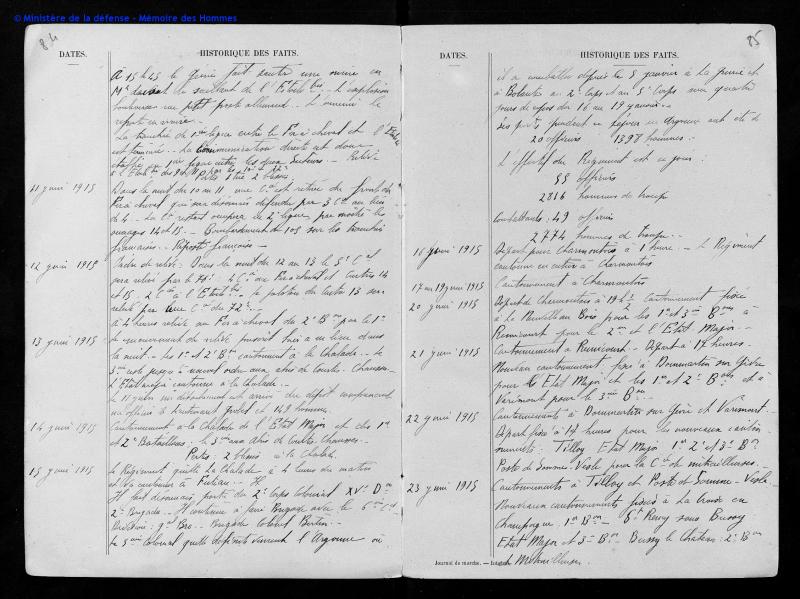 © Ministère de la défense - Mémoire des Hommes
84
DATES. HISTORIQUE DES FAITS.
À 15 h 45 le Génie fait sauter une mine en
le saillant de l'Etoile L'explosion
un petit poste allemand. L'ennemi
La tranchée de 1ère ligne entre le Fer à cheval et l'Etoile
est terminée. La communication directe est donc
établie en 1ère ligne entre les deux secteurs. Relève
Pertes 2 blessés.
11 janvi 1915 Dans la nuit du 10 au 11 une Cie est retirée du front du
Fer à cheval qui sera désormais défendu par 3 Cies au lieu
de 4. La Cie restant occupera la 2e ligne, par moitié les
ouvrages 14 et 15. Bombardement de 105 sur les tranchées
françaises. Riposte française
12 janvi 1915 Ordre de relève: Dans la nuit du 12 au 13 le 5e Cal
sera relevé par le 72e: 4 Cies au Fer à cheval et Courtes 14
et 15. 2 Cies à l'Etoile le peloton de Courtes 13 sera
relevé par une Cie du 72e.
à 4 heures relève au Fer à cheval du 2e Bon par le 1er
13 janvi 1915 Le mouvement de relève prescrit hier a eu lieu dans
la nuit. Les 1er et 2e Bons cantonnent à la Chalade. Le
3me reste jusqu'à nouvel ordre aux abris de Courte Chausse.
L'Etat Major cantonne à la Chalade.
Le 11 janv un détachement est arrivé du dépôt comprenant
un officier le lieutenant et 149 hommes.
14 janvi 1915 Cantonnement à la Chalade de l'Etat Major et des 1er
et 2e Bataillons: le 3me aux abris de Courtes Chausses.
Pertes: 2 blessés à la Chalade.
15 janvi 1915 Le Régiment quitte La Chalade à 4 heures du matin
et va cantonner à Futeau.
Il fait désormais partie du 2e Corps colonial XVe Don
2e Brigade. Il continue à faire Brigade avec le 6me Cal
Division: gal Bro. Brigade Colonel Bertin.
Le 5me Colonial quitte définitivement l'Argonne où
85
DATES. HISTORIQUE DES FAITS.
il a combattu depuis le 5 janvier à la Grurie et
à Bolante au 2e Corps et au 5e Corps sauf quatre
jours de repos du 16 au 19 janvier.
Ses pertes pendant ce séjour en Argonne ont été de
20 officiers 1398 hommes.
L'effectif du Régiment est ce jour:
55 officiers
2816 hommes de troupe
Combattants: 49 officiers
2774 hommes de troupe.
16 janvi 1915 Départ pour Charmontois à 1 heure. Le Régiment
cantonne en entier à Charmontois
17 au 19 janvi 1915 Cantonnement à Charmontois
20 janvi 1915 Départ de Charmontois à 19 h Cantonnement fixé
à Le Neuvillau Bois pour les 1er et 3me Bon à
Remicourt pour le 2me et l'Etat Major.
21 janvi 1915 Cantonnement à Remicourt Départ à 17 heures.
Nouveau cantonnement fixé à Dommartin sur Yèvre
pour l'Etat Major et les 1er et 2e Bons et à
Varimont pour le 3me Bon.
22 janvi 1915 Cantonnements à Dommartin sur Yèvre et Varimont.
Départ fixé à 14 heures pour les nouveaux canton-
nements: Tilloy Etat Major 1er 2e et 3e Bon
Poste de Somme-Vesle pour la Cie de mitrailleuses.
23 janvi 1915 Cantonnements à Tilloy et Poste de Somme-Vesle
Nouveaux cantonnements fixés à La Croix en
Champagne 1er Bon. St Remy sous Bussy
Etat Major et 3e Bon. Bussy le Château: 2e Bon
et Mitrailleuses.
Journal de marche.